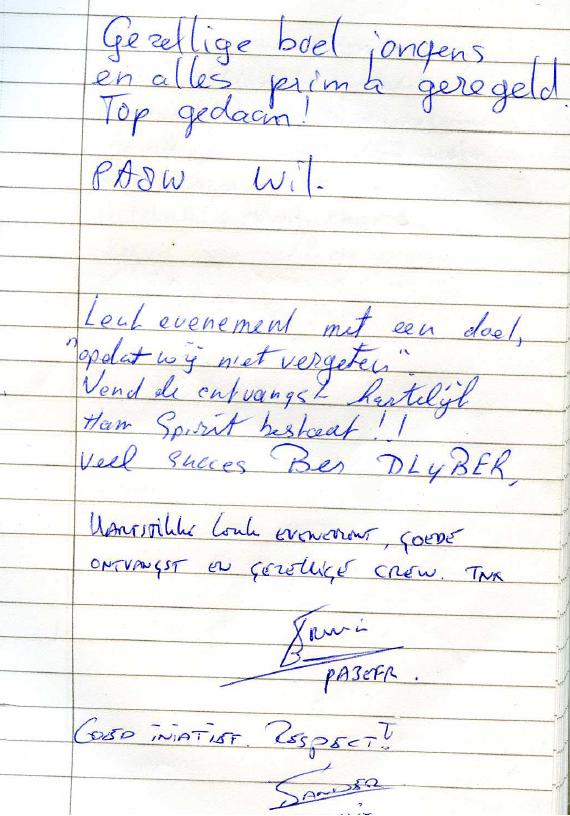 Gezellige boel jongens
en alles prima geregeld.
Top gedaan!
PA8W Wil.
Leuk evenement met een doel,
"opdat wij niet vergeten".
Vond de ontvangst hartelijk
Ham Spirit bestaat!!
Veel succes Ben DL4BER,
Hartstikke leuk evenement, goede
ontvangst en gezellige crew. Tnx
Erwin
PA3EFR.
Goed initatief. Respect!
Sander